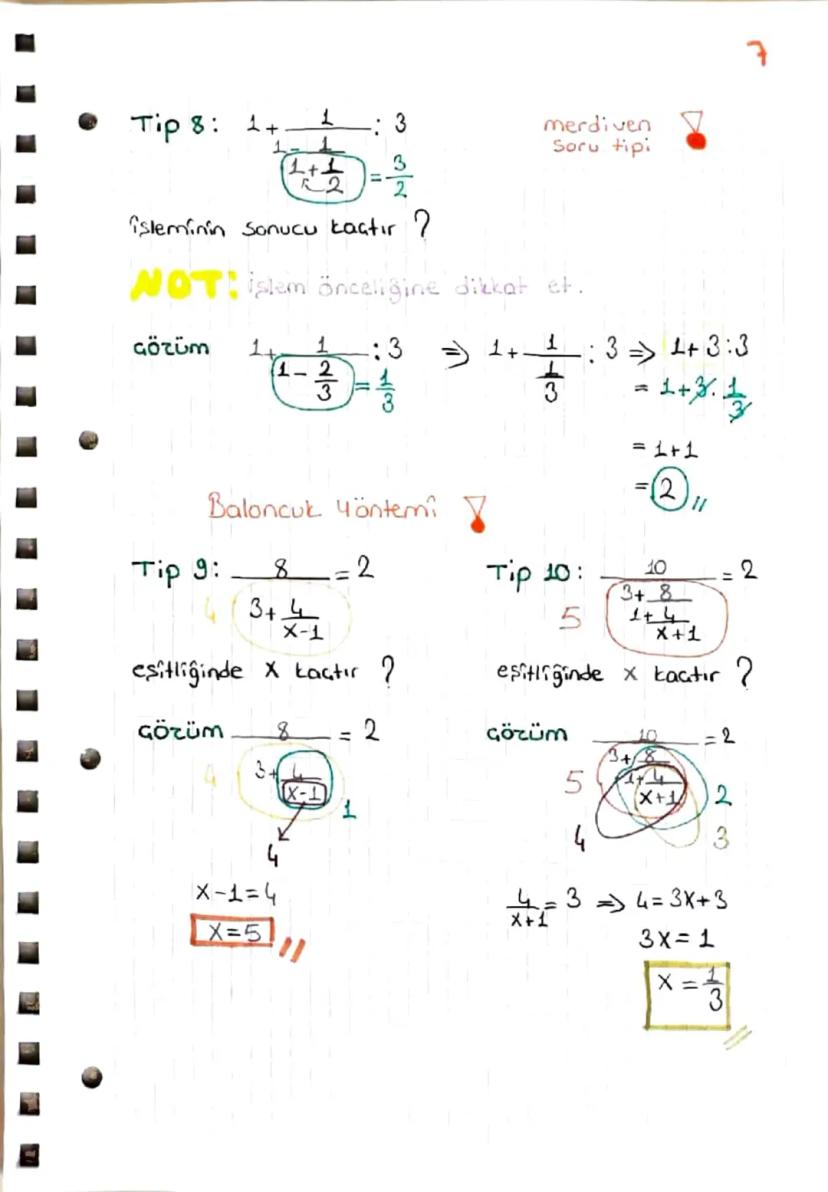 7
Tip 8: 1 + 1 / (1 - 1 / (1 + 1/2)) : 3
= 3/2
merdiven
soru tipi
işleminin sonucu kaçtır ?
NOT: işlem önceliğine dikkat et.
Çözüm 1 + 1 / (1 - 2/3) : 3 ⇒ 1 + 1 / (1/3) : 3 ⇒ 1 + 3 : 3
= 1/3
= 1 + 3 . 1/3
= 1 + 1
= 2 //
Baloncuk yöntemi
Tip 9: 8 / (3 + 4 / (x-1)) = 2
4
eşitliğinde x kaçtır ?
Çözüm 8 / (3 + 4 / (x-1)) = 2
4
1
4
x - 1 = 4
x = 5 //
Tip 10: 10 / (3 + 8 / (1 + 4 / (x+1))) = 2
5
eşitliğinde x kaçtır ?
Çözüm 10 / (3 + 8 / (1 + 4 / (x+1))) = 2
5
2
4
3
4 / (x+1) = 3 ⇒ 4 = 3x + 3
3x = 1
x = 1/3 //